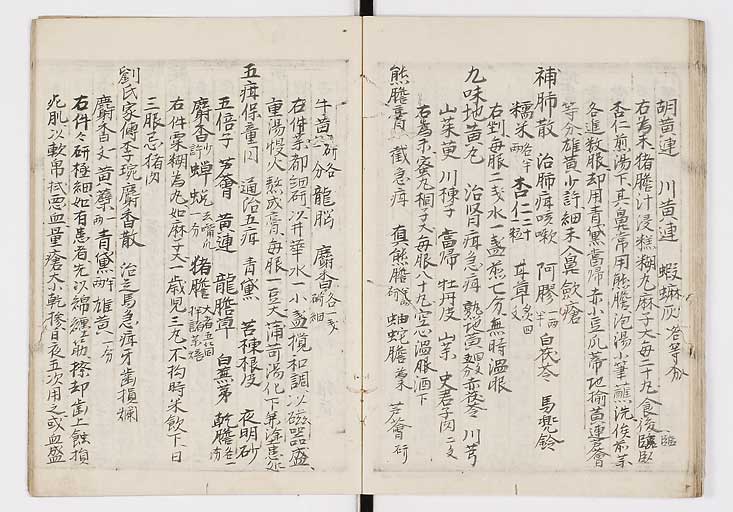 胡黄連 川黄連 蝦蟆灰 各等分
右為末猪膽汁浸糕糊丸麻子大每二十丸食後臨臥
杏仁煎湯下其鼻常用熊膽泡湯小筆蘸洗俟前藥
各進數服却用青黛當歸赤小豆瓜蒂地榆黄連蘆薈
等分雄黄少許細末入鼻歛瘡
補肺散 治肺疳咳嗽 阿膠一兩半 白茯苓 馬兜鈴
糯米各半兩 杏仁二十粒 甘草 四錢
右剉每服二戔水一盞煎七分無時溫服
九味地黄丸 治肾疳急疳 熟地黄 赤茯苓 川芎
山茱萸 川楝子 當歸 牡丹皮 山藥 史君子肉二文
右為末蜜丸桐子大每八十丸空心温服酒下
熊膽膏 截急疳 真熊膽 蚰蛇膽 蘆薈研
牛黄一分 研各 龍脳 麝香各一戔 研細
右件藥都細研以井華水一小盞攪和調以磁器盛
重湯慢火熬成膏每服一豆大薄荷湯化下兼塗患処
五疳保童円 通治五疳 青黛 苦楝根皮 夜明砂
五倍子 芦薈 黄連 龍膽草 白蕪荑 乾蟾各一分
麝香少許 蟬蛻去嘴爪一分 猪膽大者五箇
右件粟糊為丸如麻子大一歳児二丸不拘時米飲下日
三服忌猪肉
劉氏家傳李琬麝香散 治走馬急疳牙歯損爛
麝香文 黄蘗一兩 青黛半兩 雄黄一分
右件々研極細如有患者先以綿纏筋擦却歯上蝕損
死肌以軟帛拭悪血量瘡大小乾摻日夜五次用之或血盛